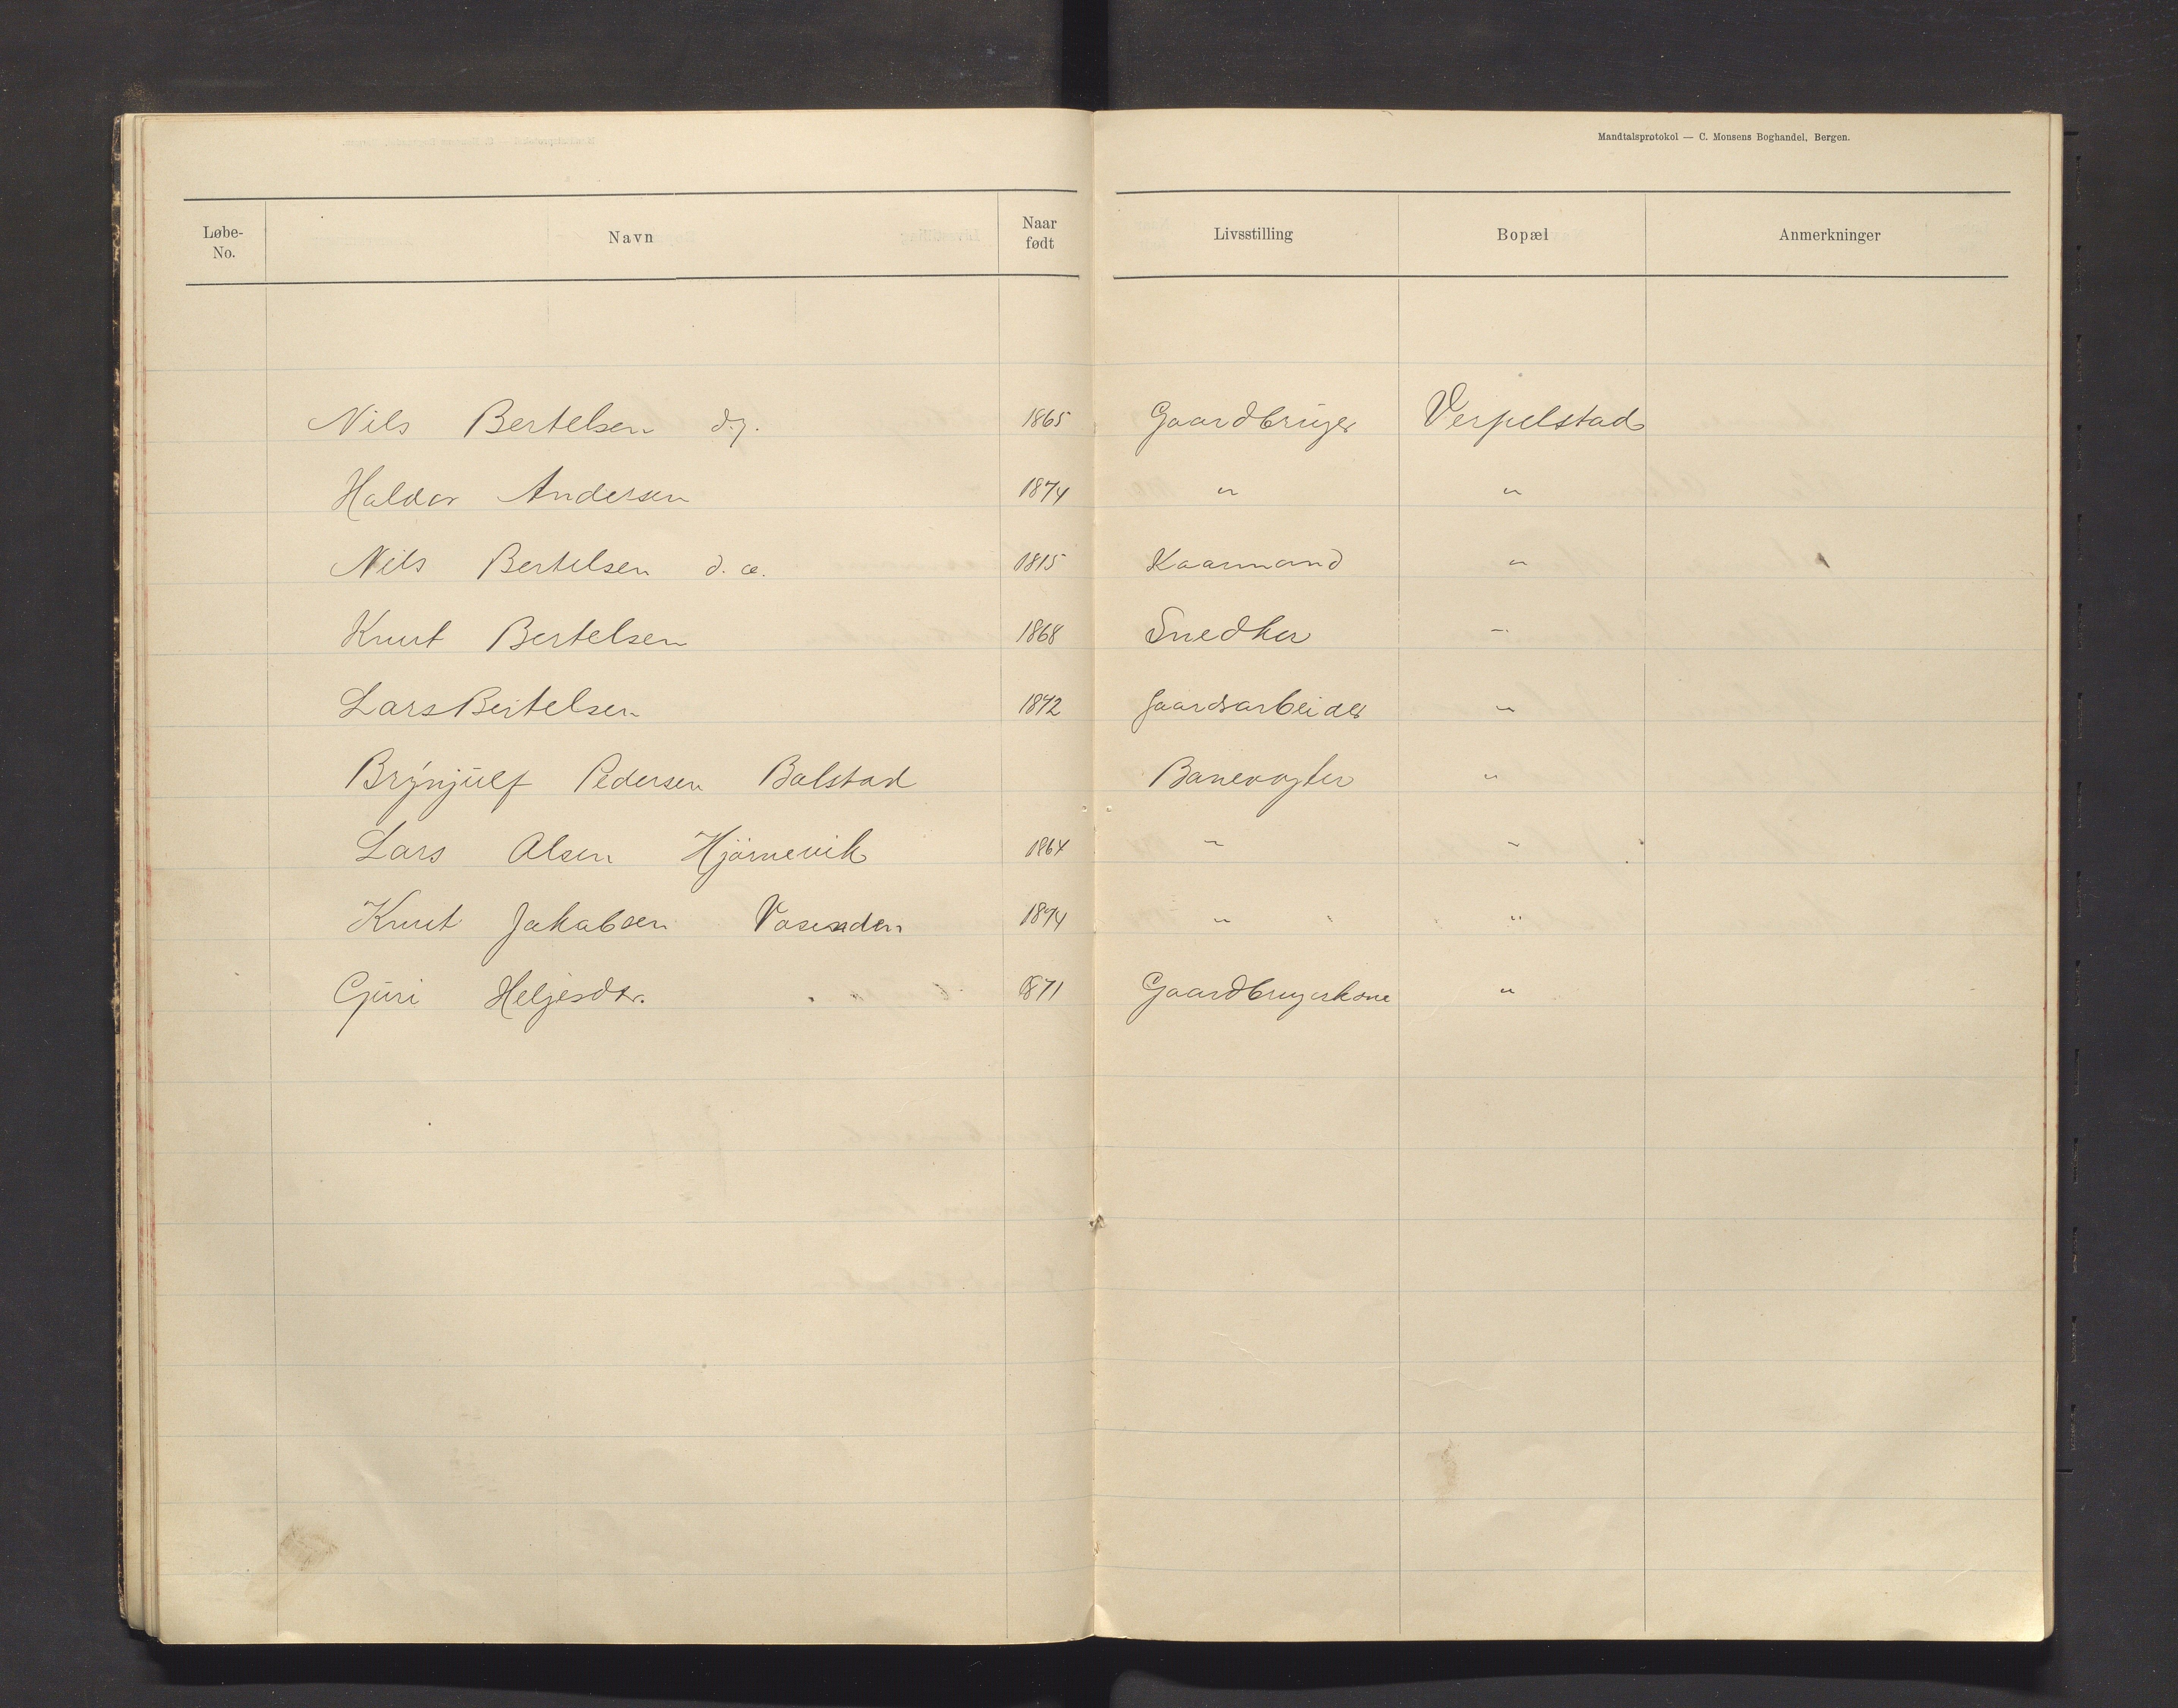 Mandtalsprotokol — C. Monsens Boghandel, Bergen.
Løbe-No. Navn Naar født Livsstilling Bopæl Anmerkninger
Nils Bertelsen d.y. 1865 Gaardbruger Verpelstad
Haldor Andersen 1874 " "
Nils Bertelsen d.æ. 1815 Kaarmand "
Knut Bertelsen 1868 Snedker "
Lars Bertelsen 1842 Gaardsarbeider "
Brynjulf Pedersen Bolstad Banevogter "
Lars Olsen Hjørnevik 1864 " "
Knut Jakobsen Vasenden 1874 " "
Guri Helgesdtr. 1871 Gaardbrugerkone "